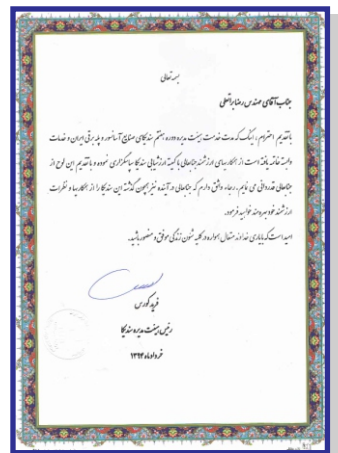 بسمه تعالی
جناب آقای مهندس رضا براتعلی
با تقدیم احترام، اینک که مدت خدمت هیئت مدیره دوره هفتم سندیکای صنایع آسانسور و پله برقی ایران و خدمات
وابسته خاتمه یافته است از همکاریهای ارزشمند جنابعالی با کمیته ارزشیابی سندیکا سپاسگزاری نموده و با تقدیم این لوح از
جنابعالی قدردانی می نمایم. رجاء واثق دارم که جنابعالی در آینده نیز همچون گذشته این سندیکا را از همکاریها و نظرات
ارزشمند خود بهره مند خواهید فرمود.
امید است که با یاری خداوند متعال همواره در کلیه شئون زندگی موفق و منصور باشید.
فرید کورس
رئیس هیئت مدیره سندیکا
خرداد ماه ۱۳۹۴